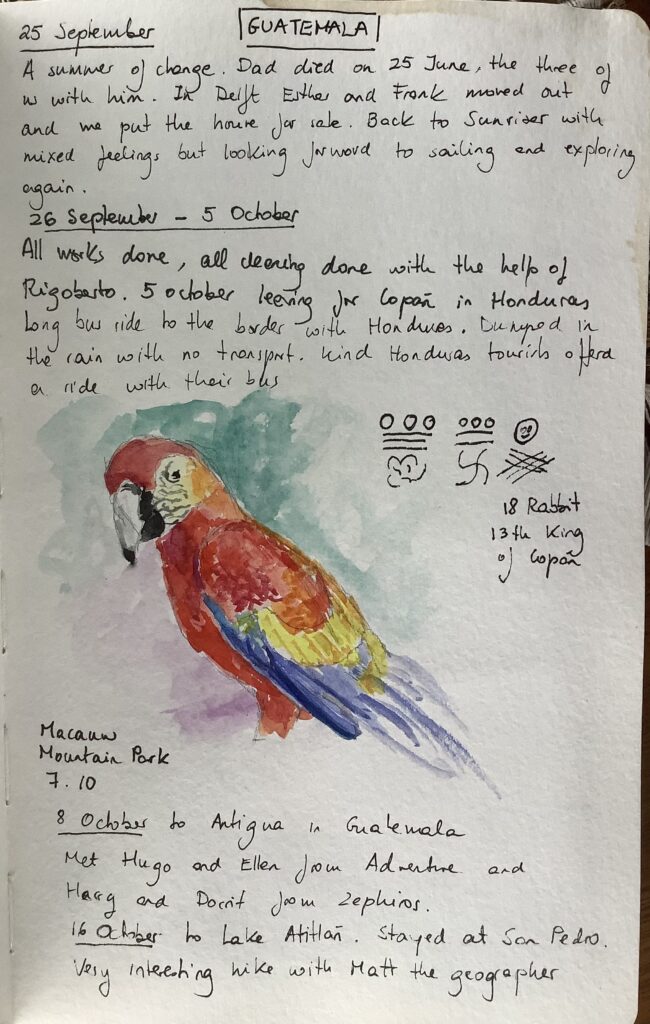 25 September
GUATEMALA
A summer of change. Dad died on 25 June, the three of
us with him. In Delft Esther and Frank moved out
and we put the house for sale. Back to Sunriser with
mixed feelings but looking forward to sailing and exploring
again.
26 September - 5 October
All works done, all cleening done with the help of
Rigoberto. 5 october leeving for Copañ in Honduras
Long bus ride to the border with Honduras. Dumped in
the rain with no transport. Kind Honduras tourists offerd
a ride with their bus
18 Rabbit
13th King
of Copañ
Macauw
Mountain Park
7.10
8 October to Antigua in Guatemala
Met Hugo and Ellen from Adventure and
and Dorrit from Zephiros.
16 October to Lake Atitlañ. Stayed at San Pedro.
Very interesting hike with Matt the geographer